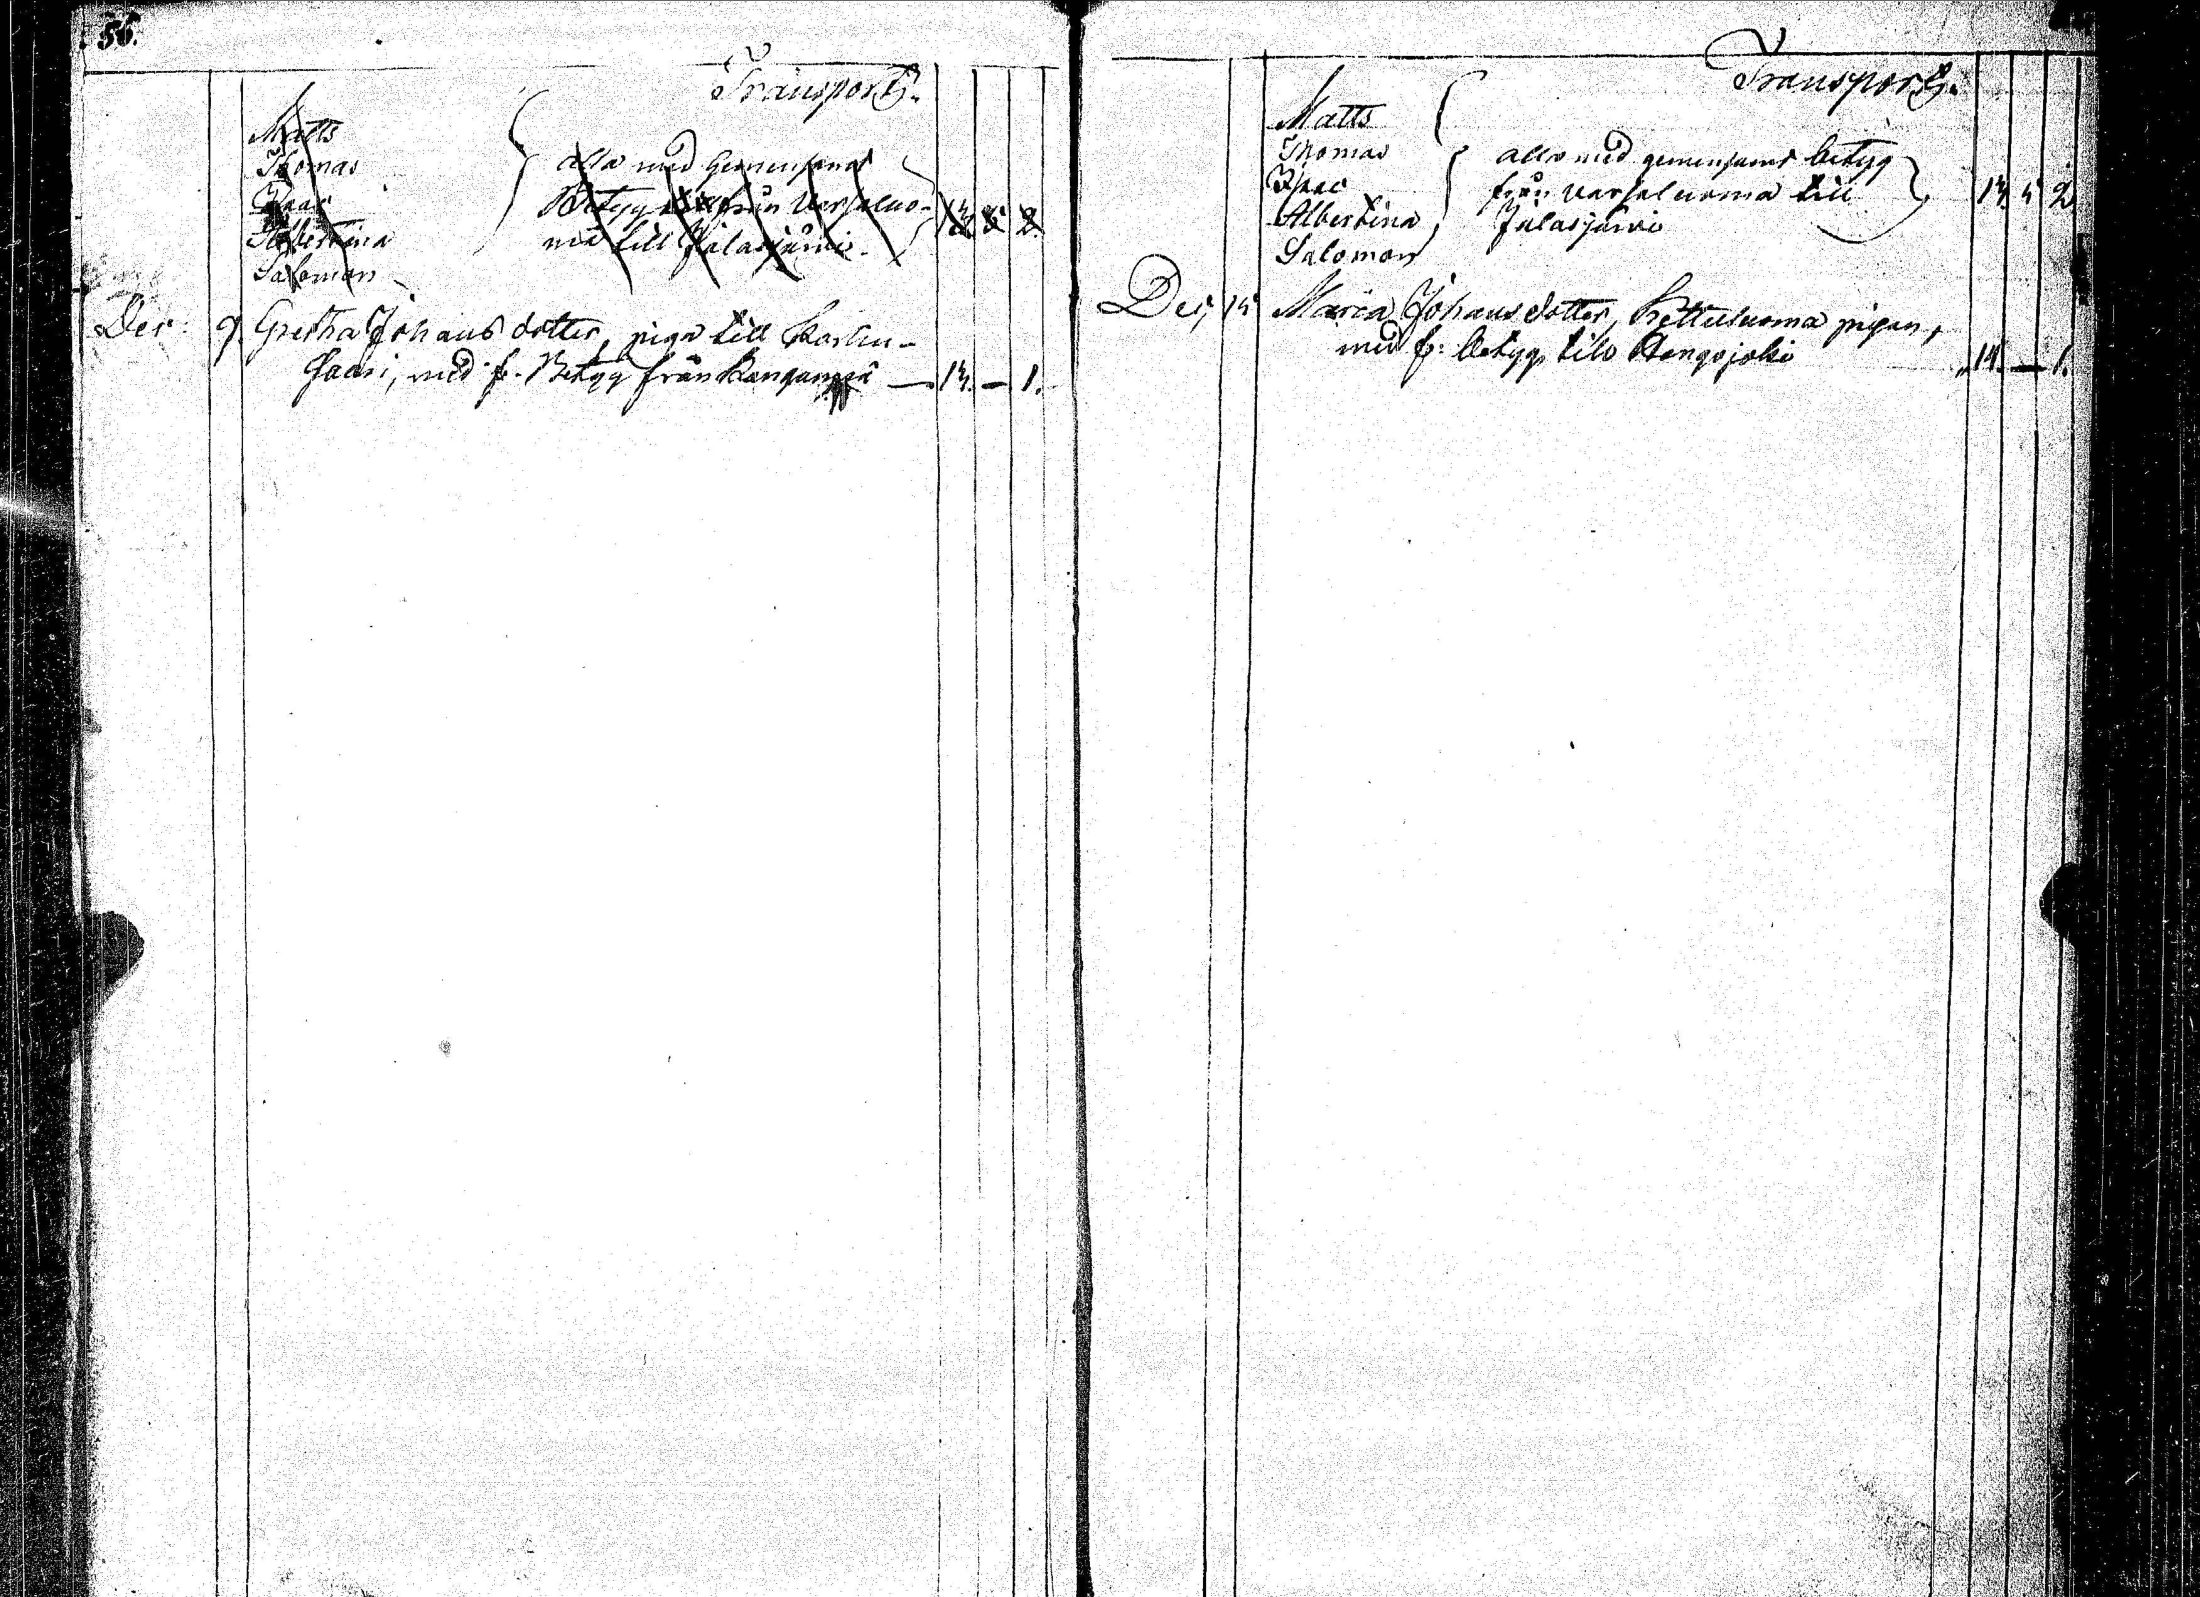 56.
Transport.
Matts
Thomas
Isaac
Albertina
Salomon
alla med Gemensamt
Betyg från Varsaluo-
ma till Jalasjärvi. 13. 5. 2.
Dec. 9. Gretha Johansdotter, piga till Karhu-
saari, med fr. Betyg från Kangan — 13. — 1.
Transport.
Matts
Thomas
Isaac
Albertina
Salomon
alla med gemensamt betyg
från Varsaluoma till 13. 5 2
Jalasjärvi
Dec, 15 Maria Johansdotter, Kettuluoma pigan,
med fr: betyg till Hangojoki 14. — 1.